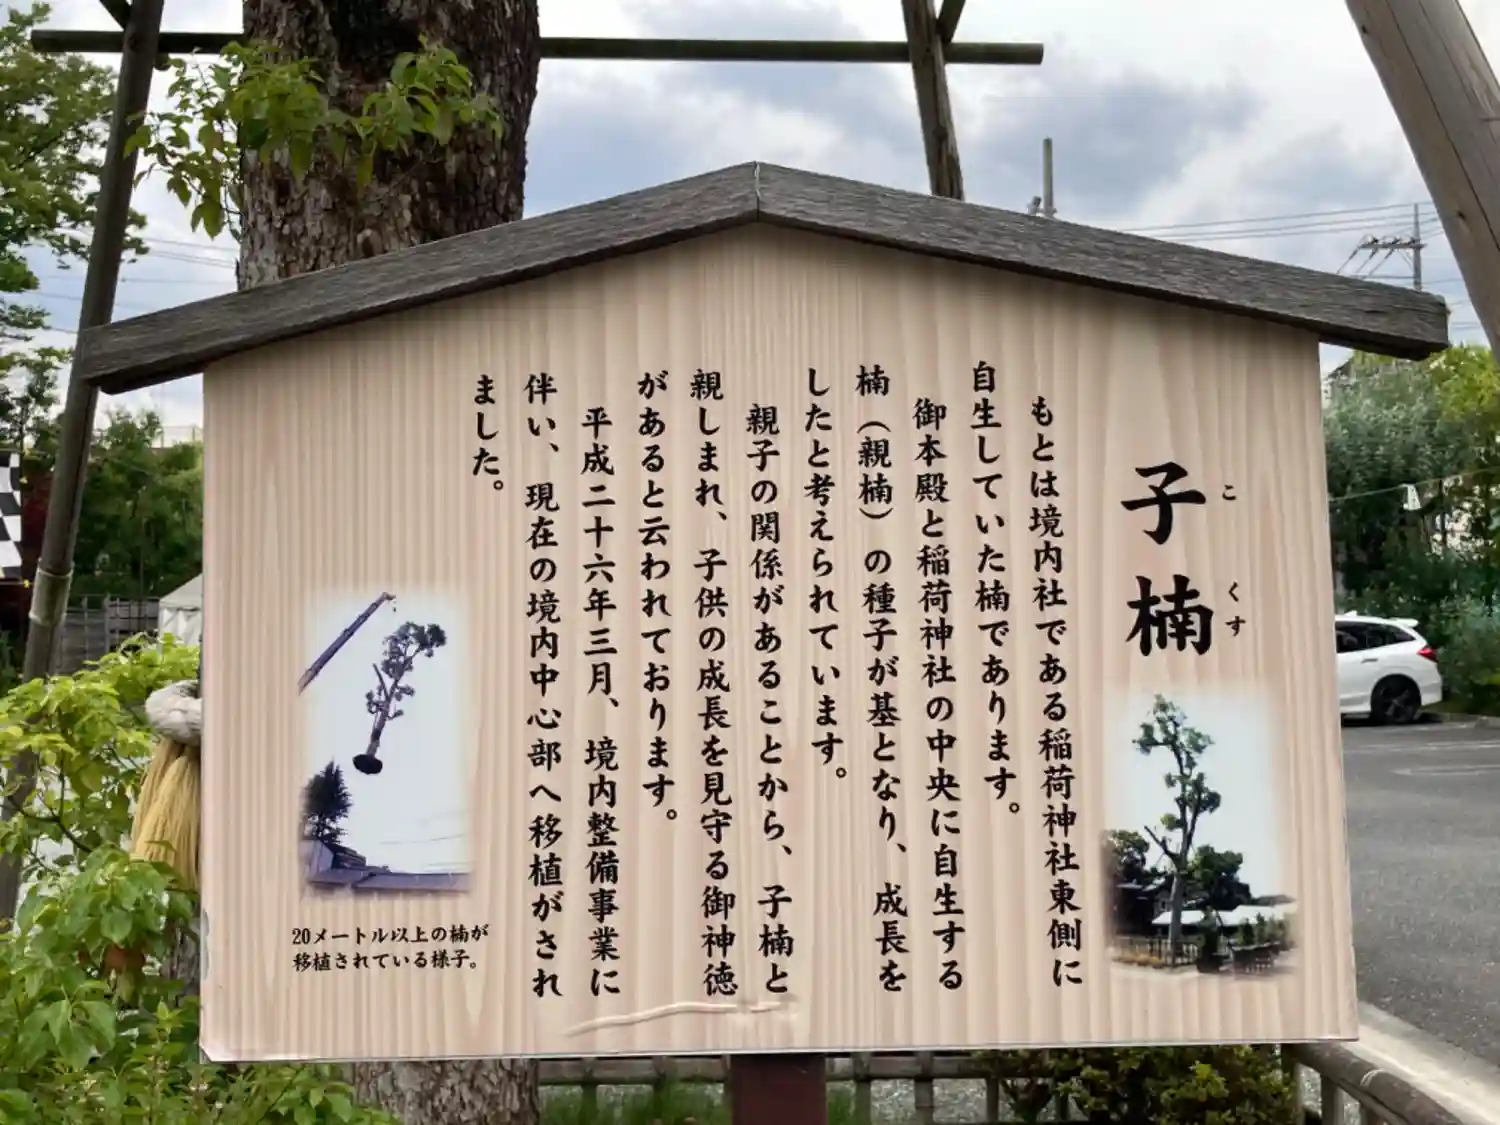 子楠
こ
くす
もとは境内社である稲荷神社東側に
自生していた楠であります。
御本殿と稲荷神社の中央に自生する
楠（親楠）の種子が基となり、成長を
したと考えられています。
親子の関係があることから、子楠と
親しまれ、子供の成長を見守る御神徳
があると云われております。
平成二十六年三月、境内整備事業に
伴い、現在の境内中心部へ移植がされ
ました。
20メートル以上の楠が
移植されている様子。